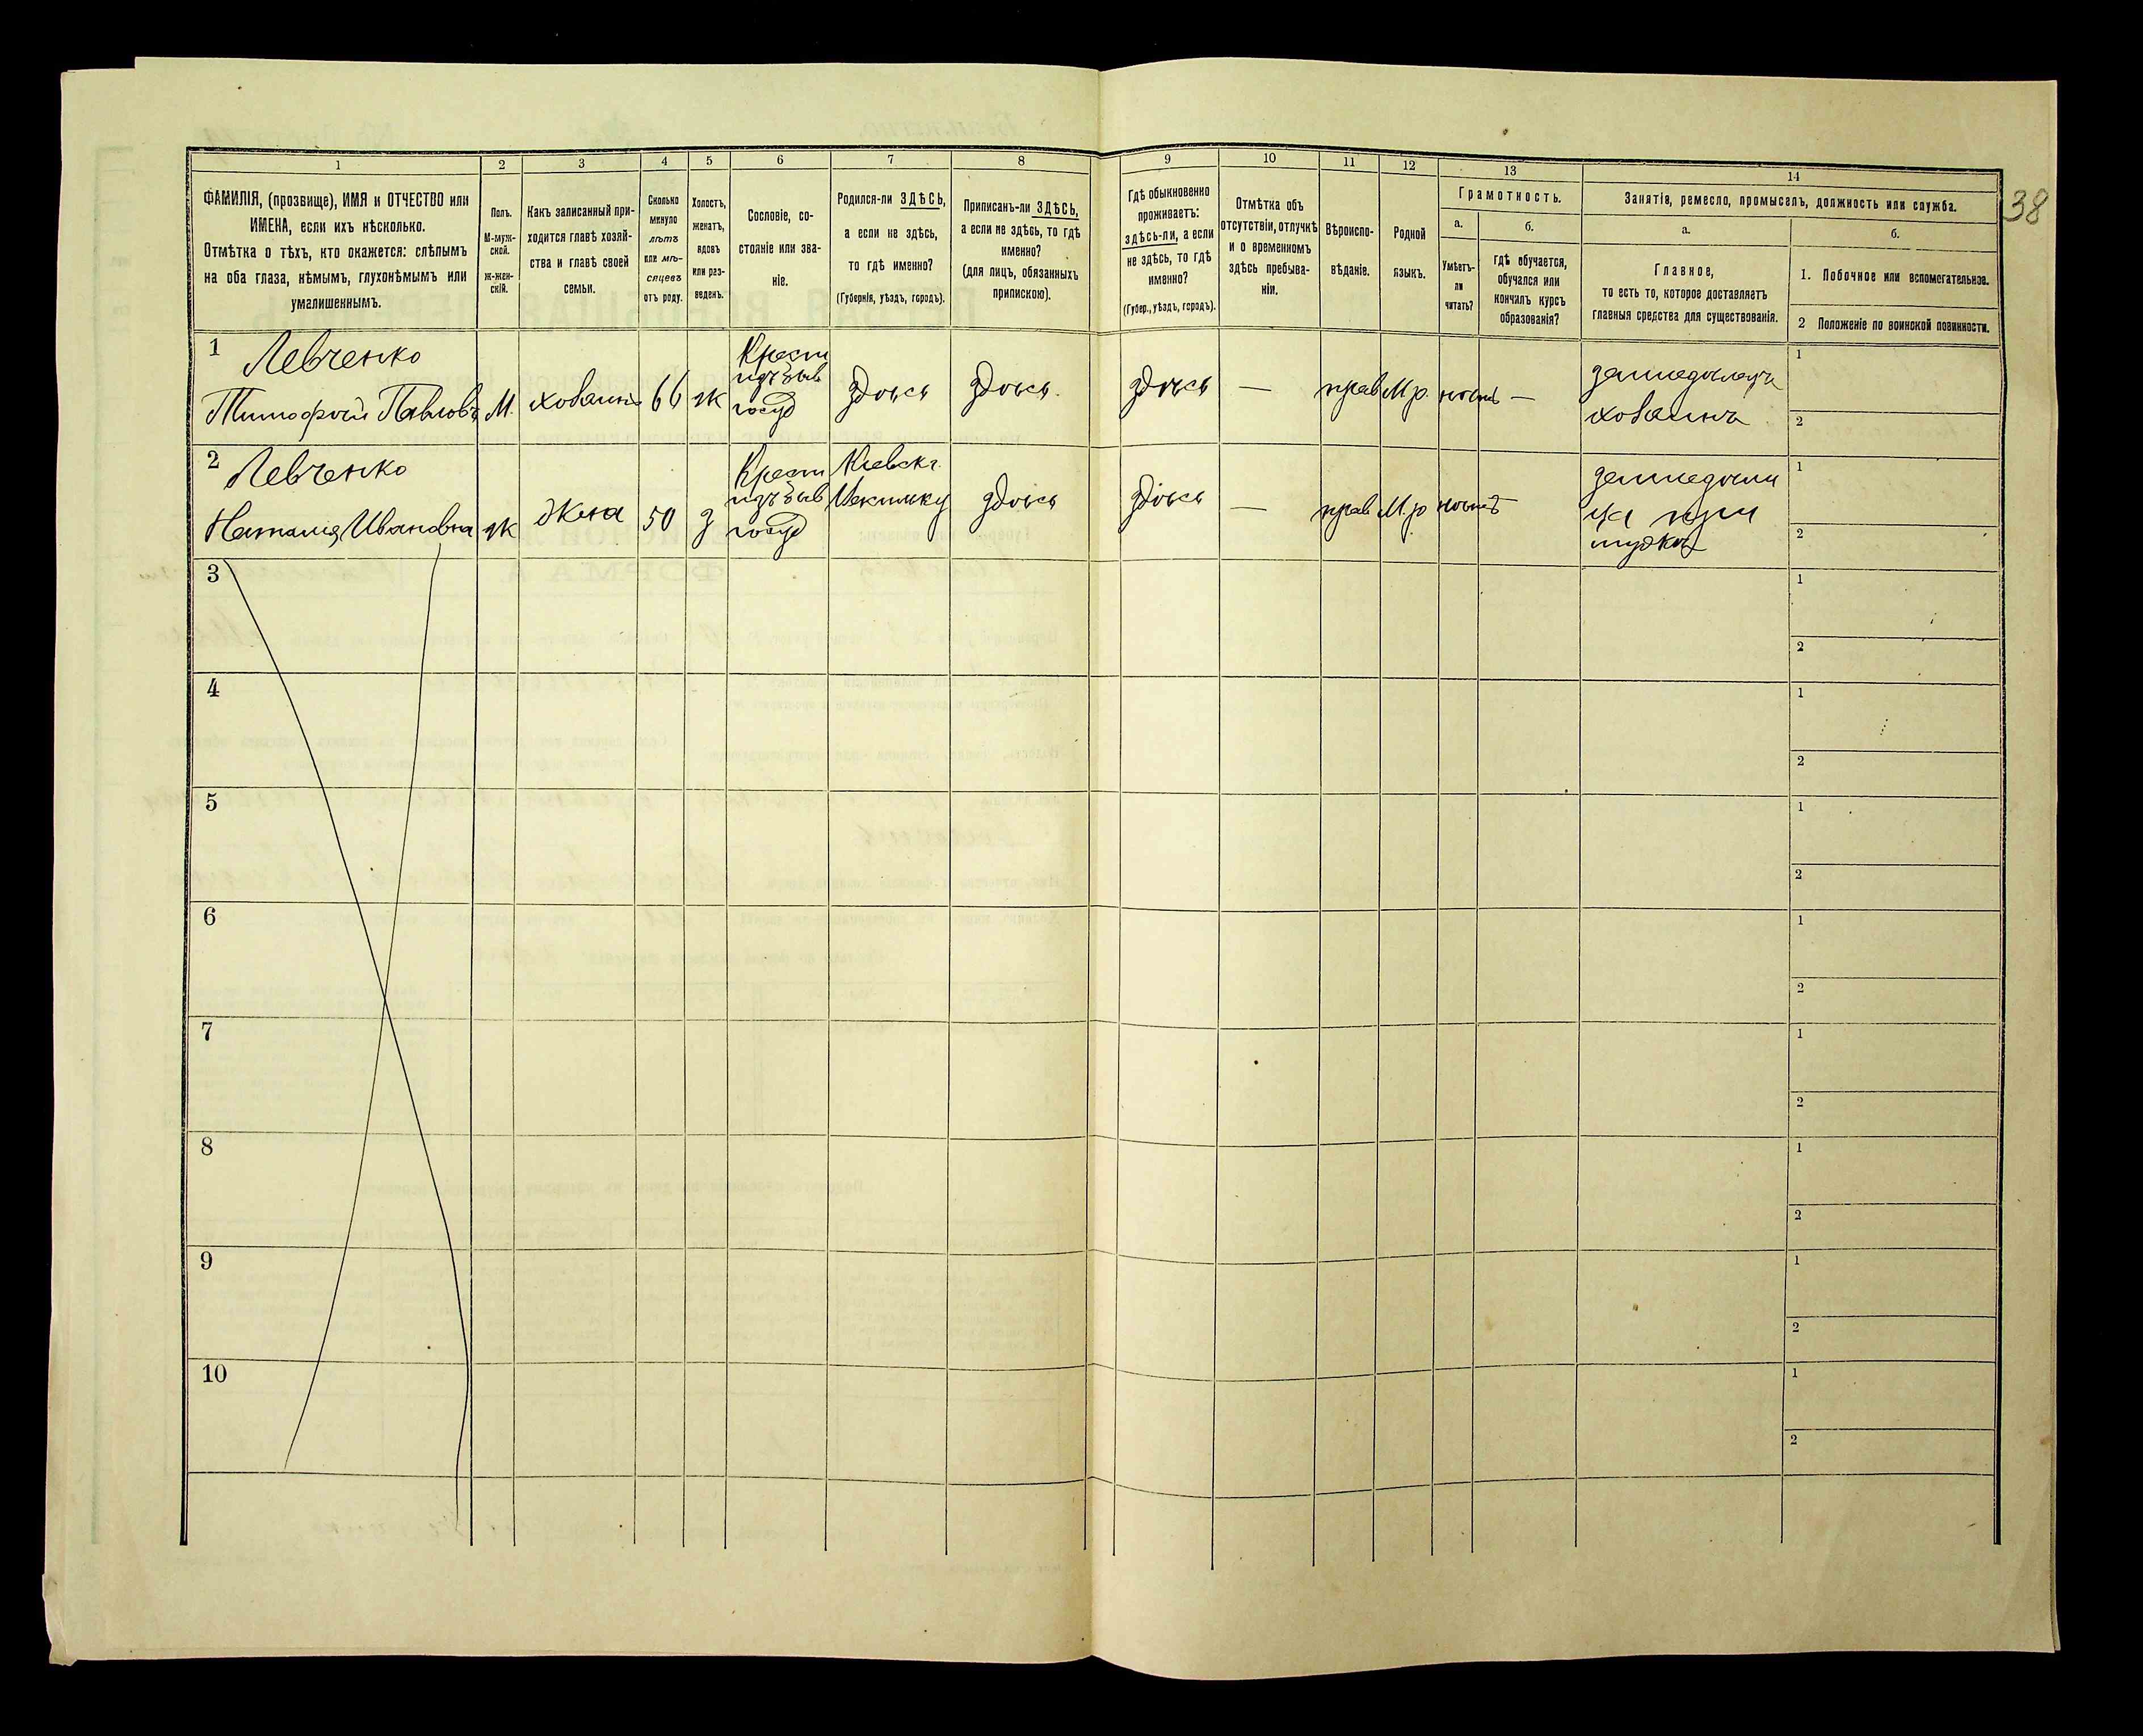 1
2
3
4
5
6
7
8
9
10
11
12
13
14
38
ФАМИЛІЯ, (прозвище), ИМЯ и ОТЧЕСТВО или
ИМЕНА, если ихъ нѣсколько.
Отмѣтка о тѣхъ, кто окажется: слѣпымъ
на оба глаза, нѣмымъ, глухонѣмымъ или
умалишеннымъ.
Полъ.
М-муж-
ской.
ж-жен-
скій.
Какъ записанный при-
ходится главѣ хозяй-
ства и главѣ своей
семьи.
Сколько
минуло
лѣтъ
или мѣ-
сяцевъ
отъ роду.
Холостъ,
женатъ,
вдовъ
или раз-
веденъ.
Сословіе, со-
стояніе или зва-
ніе.
Родился-ли ЗДѢСЬ,
а если не здѣсь,
то гдѣ именно?
(Губернія, уѣздъ, городъ).
Приписанъ-ли ЗДѢСЬ,
а если не здѣсь, то гдѣ
именно?
(для лицъ, обязанныхъ
припискою).
Гдѣ обыкновенно
проживаетъ:
здѣсь-ли, а если
не здѣсь, то гдѣ
именно?
(Губер., уѣздъ, городъ).
Отмѣтка объ
отсутствіи, отлучкѣ
и о временномъ
здѣсь пребыва-
ніи.
Вѣроиспо-
вѣданіе.
Родной
языкъ.
Грамотность.
а.
Умѣетъ-
ли
читать?
б.
гдѣ обучается,
обучался или
кончилъ курсъ
образованія?
Занятія, ремесло, промыселъ, должность или служба.
а.
Главное,
то есть то, которое доставляетъ
главныя средства для существованія.
б.
1. Побочное или вспомогательное.
2 Положеніе по воинской повинности.
1 Левченко
Тимофѣй Павловъ
М.
хозаинъ
66
ж
Крест
изъ быв
госуд
здѣсь
здѣсь.
здѣсь
—
прав
М р.
нѣтъ
—
земледѣлецъ
хозаинъ
1
2
2 Левченко
Наталия Ивановна
ж
жена
50
з
Крест
изъ быв
госуд
Кіевск г.
здѣсь
здѣсь
—
прав
М. р
нѣтъ
—
землєдѣли
ца при
мужѣ
1
2
3
1
2
4
1
2
5
1
2
6
1
2
7
1
2
8
1
2
9
1
2
10
1
2